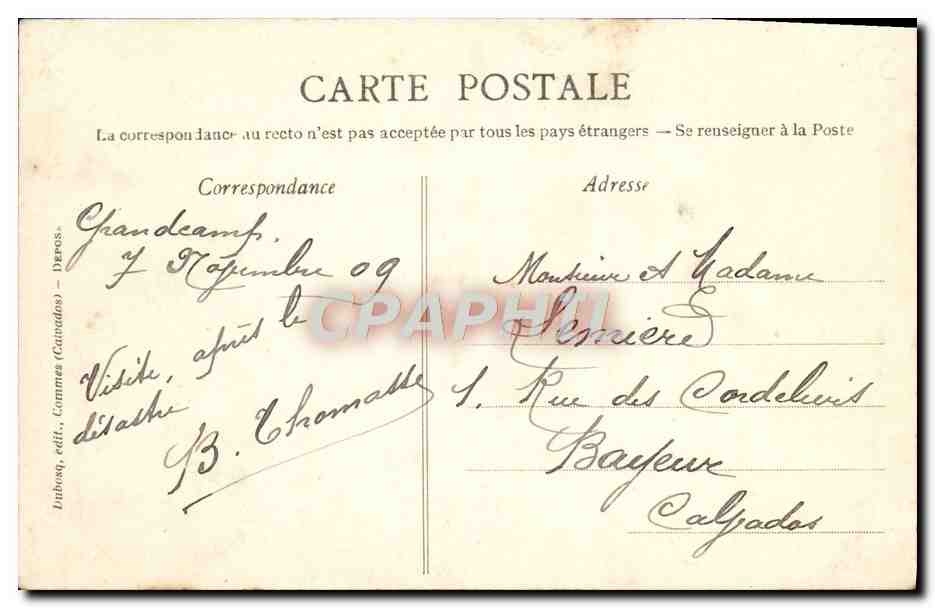 CARTE POSTALE
La correspondance au recto n'est pas acceptée par tous les pays étrangers — Se renseigner à la Poste
Correspondance
Grandcamp.
7 Novembre 09
Visite, après le
désastre
B. Thomasse
Adresse
Monsieur et Madame
Lemière
1. Rue des Cordeliers
Bayeux
Calvados
Dubosq, édit., Commes (Calvados) — DEPOS
CPAPHIL